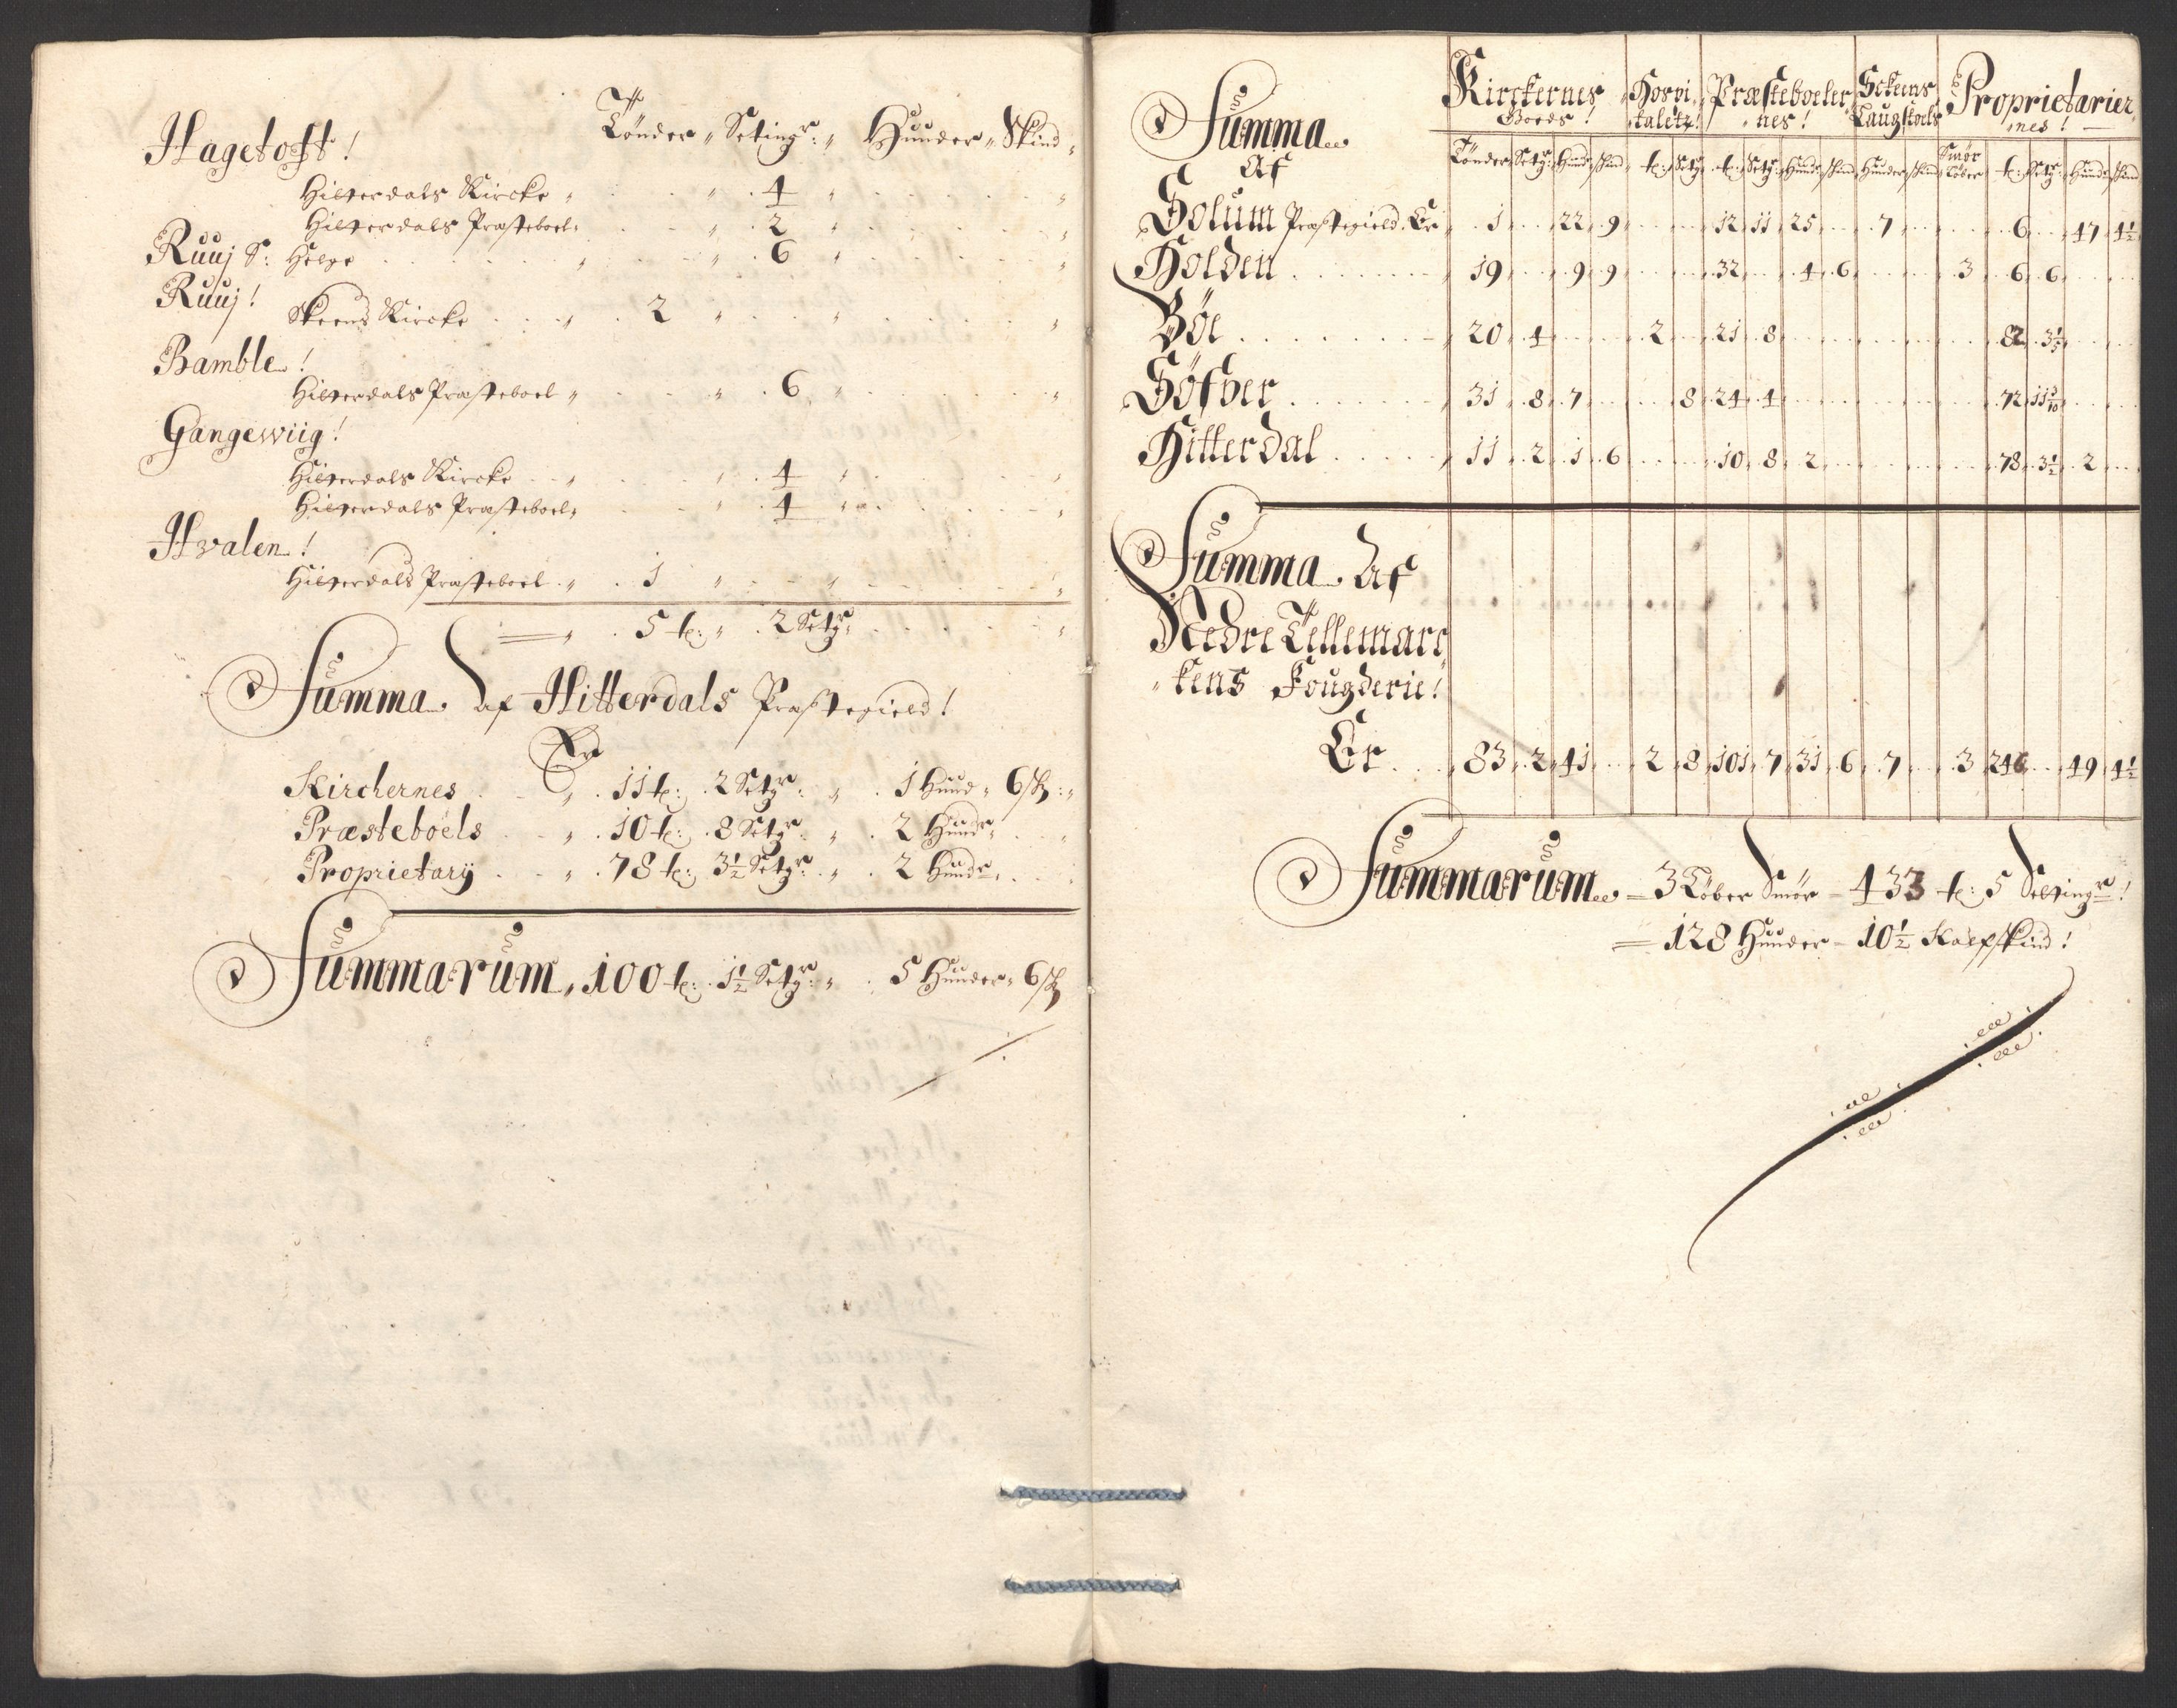 Tønder Setingr: Hunder Skind
Hagetofft!
Hitterdals Kircke 4
Hitterdals Præsteboel 2
Ruuj S: Helge 6
Ruuj!
Skeens Kircke 2
Bamble!
Hitterdals Præsteboel 6
Gangewiig!
Hitterdals Kircke 4
Hitterdals Præsteboel 4
Hvalen!
Hitterdals Præsteboel 1
5 t: 2 Setgr:
Summa Af Hitterdals Præstegield!
Er
Kirchernes 11 t: 2 Setgr: 1 Hund 6 sk:
Præsteboels 10 t: 8 Setgr: 2 Hundr
Proprietarij 78 t: 3½ Setgr: 2 Hundr
Summarum, 100 t: 1½ Setgr: 5 Hunder 6 sk
Summa Af
Kirckernes Goeds! Hospitaletz! Præsteboelernes! Sckeens Laugstoels Proprietariernes!
Tønder Setgr: Hund: skind t: Setgr t: Setgr: Hund: skind Hunder skind Smør Løber t: Setgr: Hund: skind
Solum Præstegield. Er 1 22 9 12 11 25 7 6 47 4½
Holden 19 9 9 32 4 6 3 6 6
Böe 20 4 2 21 8 82 3⅕
Söfver 31 8 7 8 24 4 72 11 3/10
Hitterdal 11 2 1 6 10 8 2 78 3½ 2
Summa Af
Nedre Tellemarc
kens Fougderie!
Er 83 2 41 2 8 101 7 31 6 7 3 246 49 4½
Summarum 3 Løber Smør 433 t: 5 Setingr!
128 Hunder 10½ Kalfskind!